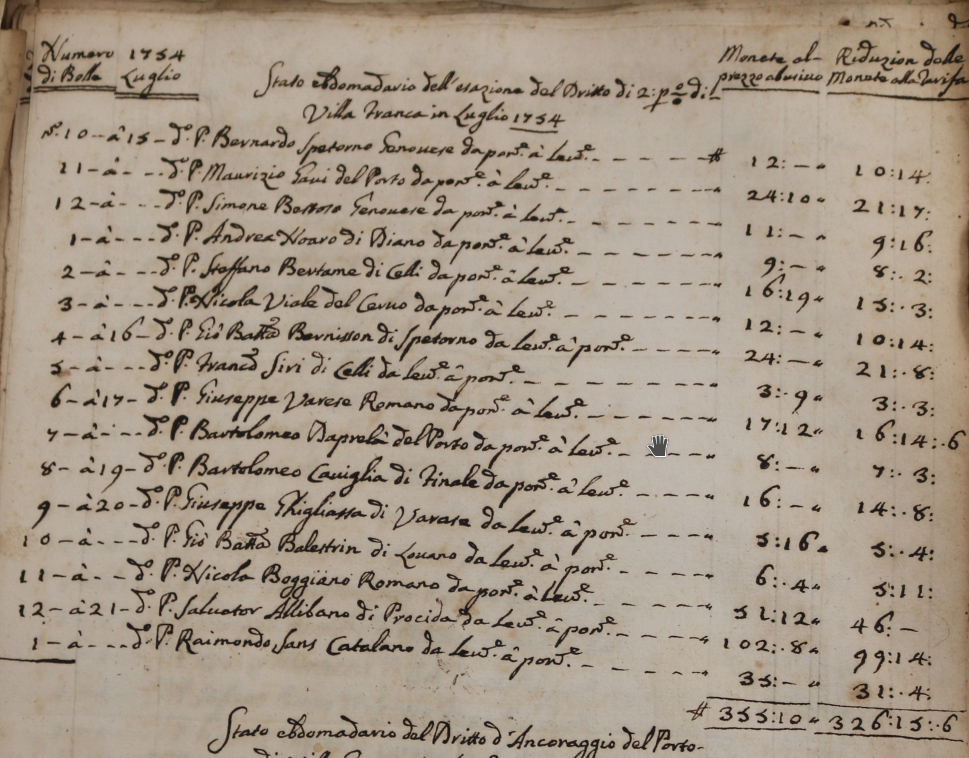 Numero 1754 Monete al- Riduzion delle
di Bolle Luglio prezzo abusivo Monete alla Tariffa
Stato ebdomadario dell'esazione del Dritto di 2: p% di
Villa Franca in Luglio 1754
n.° 10 - à 15 - d.° P. Bernardo Spetorno Genovese da pon.e à lev.e - - - - - # 12: - " 10:14:
11 - à - - - d.° P. Maurizio Gavi del Porto da pon.e à lev.e - - - - - - " 24:10 " 21:17:
12 - à - - - d.° P. Simone Bottoso Genovese da pon.e à lev.e - - - - - " 11: - " 9:16:
1 - à - - - d.° P. Andrea Noaro di Diano da pon.e à lev.e - - - - - " 9: - " 8: 2:
2 - à - - - d.° P. Steffano Bertame di Celli da pon.e à lev.e - - - - - " 16:19 " 15: 3:
3 - à - - - d.° P. Nicola Viale del Cervo da pon.e à lev.e - - - - - " 12: - " 10:14:
4 - à 16 - d.° P. Gio Batta Bernisson di Spetorno da lev.e à pon.e - - - - " 24: - " 21: 8:
5 - à - - - d.° P. Franco Siri di Celli da lev.e à pon.e - - - - - " 3: 9 " 3: 3:
6 - à 17 - d.° P. Giuseppe Varese Romano da pon.e à lev.e - - - - - " 17:12 " 16:14: 6
7 - à - - - d.° P. Bartolomeo Daprelà del Porto da pon.e à lev.e - - - - " 8: - " 7: 3:
8 - à 19 - d.° P. Bartolomeo Caviglia di Finale da pon.e à lev.e - - - - " 16: - " 14: 8:
9 - à 20 - d.° P. Giuseppe Ghigliassa di Varase da lev.e à pon.e - - - - " 5:16 " 5: 4:
10 - à - - - d.° P. Gio Batta Balestrin di Lovano da lev.e à pon.e - - - - " 6: 4 " 5:11:
11 - à - - - d.° P. Nicola Boggiano Romano da pon.e à lev.e - - - - - " 51:12 " 46: -
12 - à 21 - d.° P. Salvator Allibano di Procida da lev.e à pon.e - - - - " 102: 8 " 99:14:
1 - à - - - d.° P. Raimondo Sans Catalano da lev.e à pon.e - - - - - " 35: - " 31: 4:
# 355:10 " 326:15: 6
Stato ebdomadario del Dritto d'Ancoraggio del Porto-